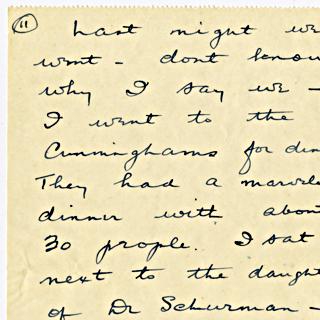 11
Last night we
went - dont know
why I say we -
I went to the
Cunninghams for din
They had a marvelo
dinner with abou
30 people. I sat
next to the daught
of Dr Schurman -